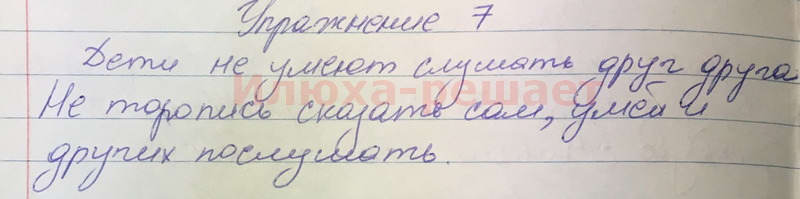 Упражнение 7
Дети не умеют слушать друг друга
Илюха-решает
Не торопись сказать сам, умей и
других послушать.